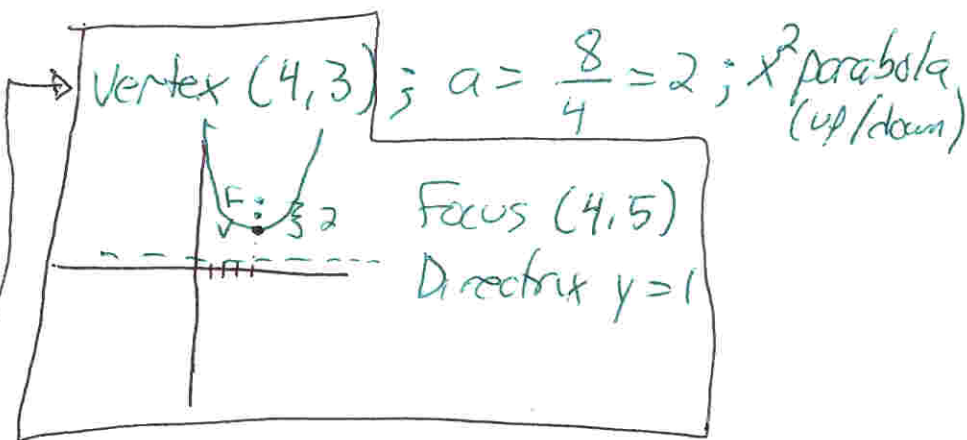 Vertex (4,3); a = 8/4 = 2; x² parabola
(up/down)
F
V
2
Focus (4,5)
Directrix y = 1